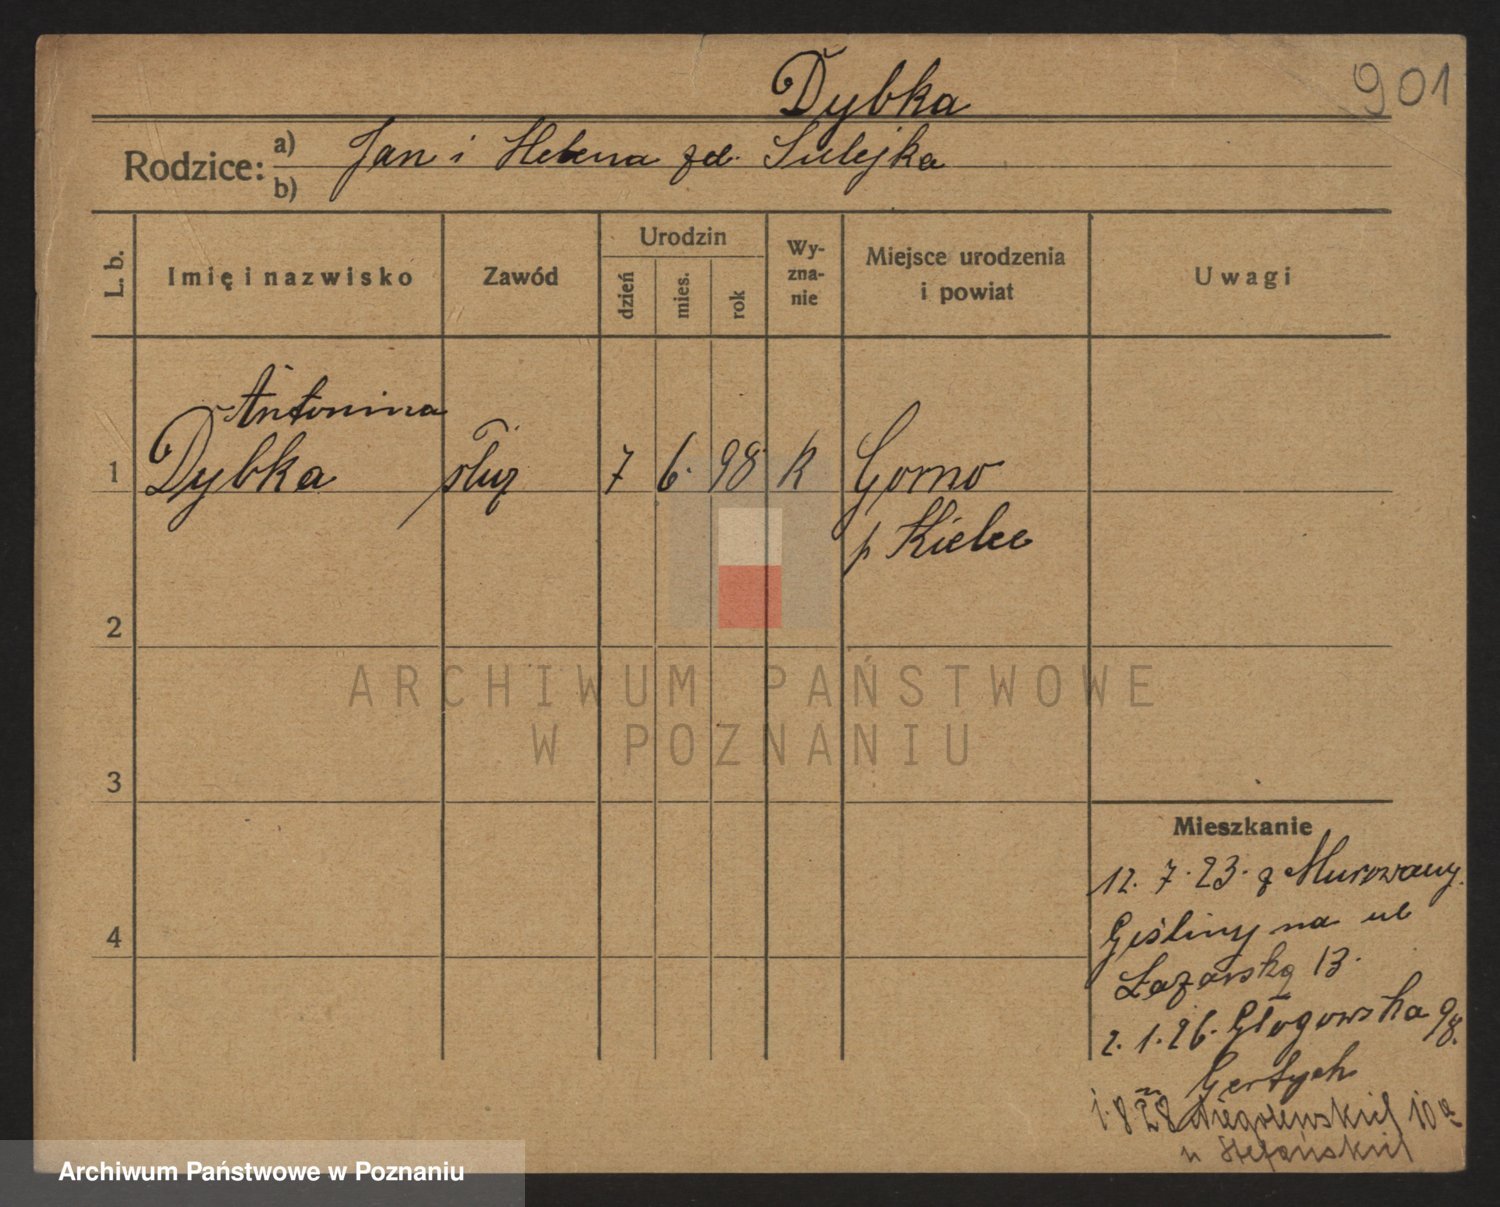 Dybka
901
Rodzice:
a) Jan i Helena zd. Sulejka
b)
L. b.
Imię i nazwisko
Zawód
Urodzin
dzień
mies.
rok
Wy-
zna-
nie
Miejsce urodzenia
i powiat
Uwagi
Antonina
1 Dybka służ 7 6. 98 k Gorno
p Kielce
2
3
4
Mieszkanie
12. 7. 23. z Murowany.
Gośliny na ul
Łazarską 13.
2. 1. 26. Głogowska 98.
u Gertych
1. 8 28 Niegolewskich 10a
u Stefańskich
ARCHIWUM PAŃSTWOWE
W POZNANIU
Archiwum Państwowe w Poznaniu